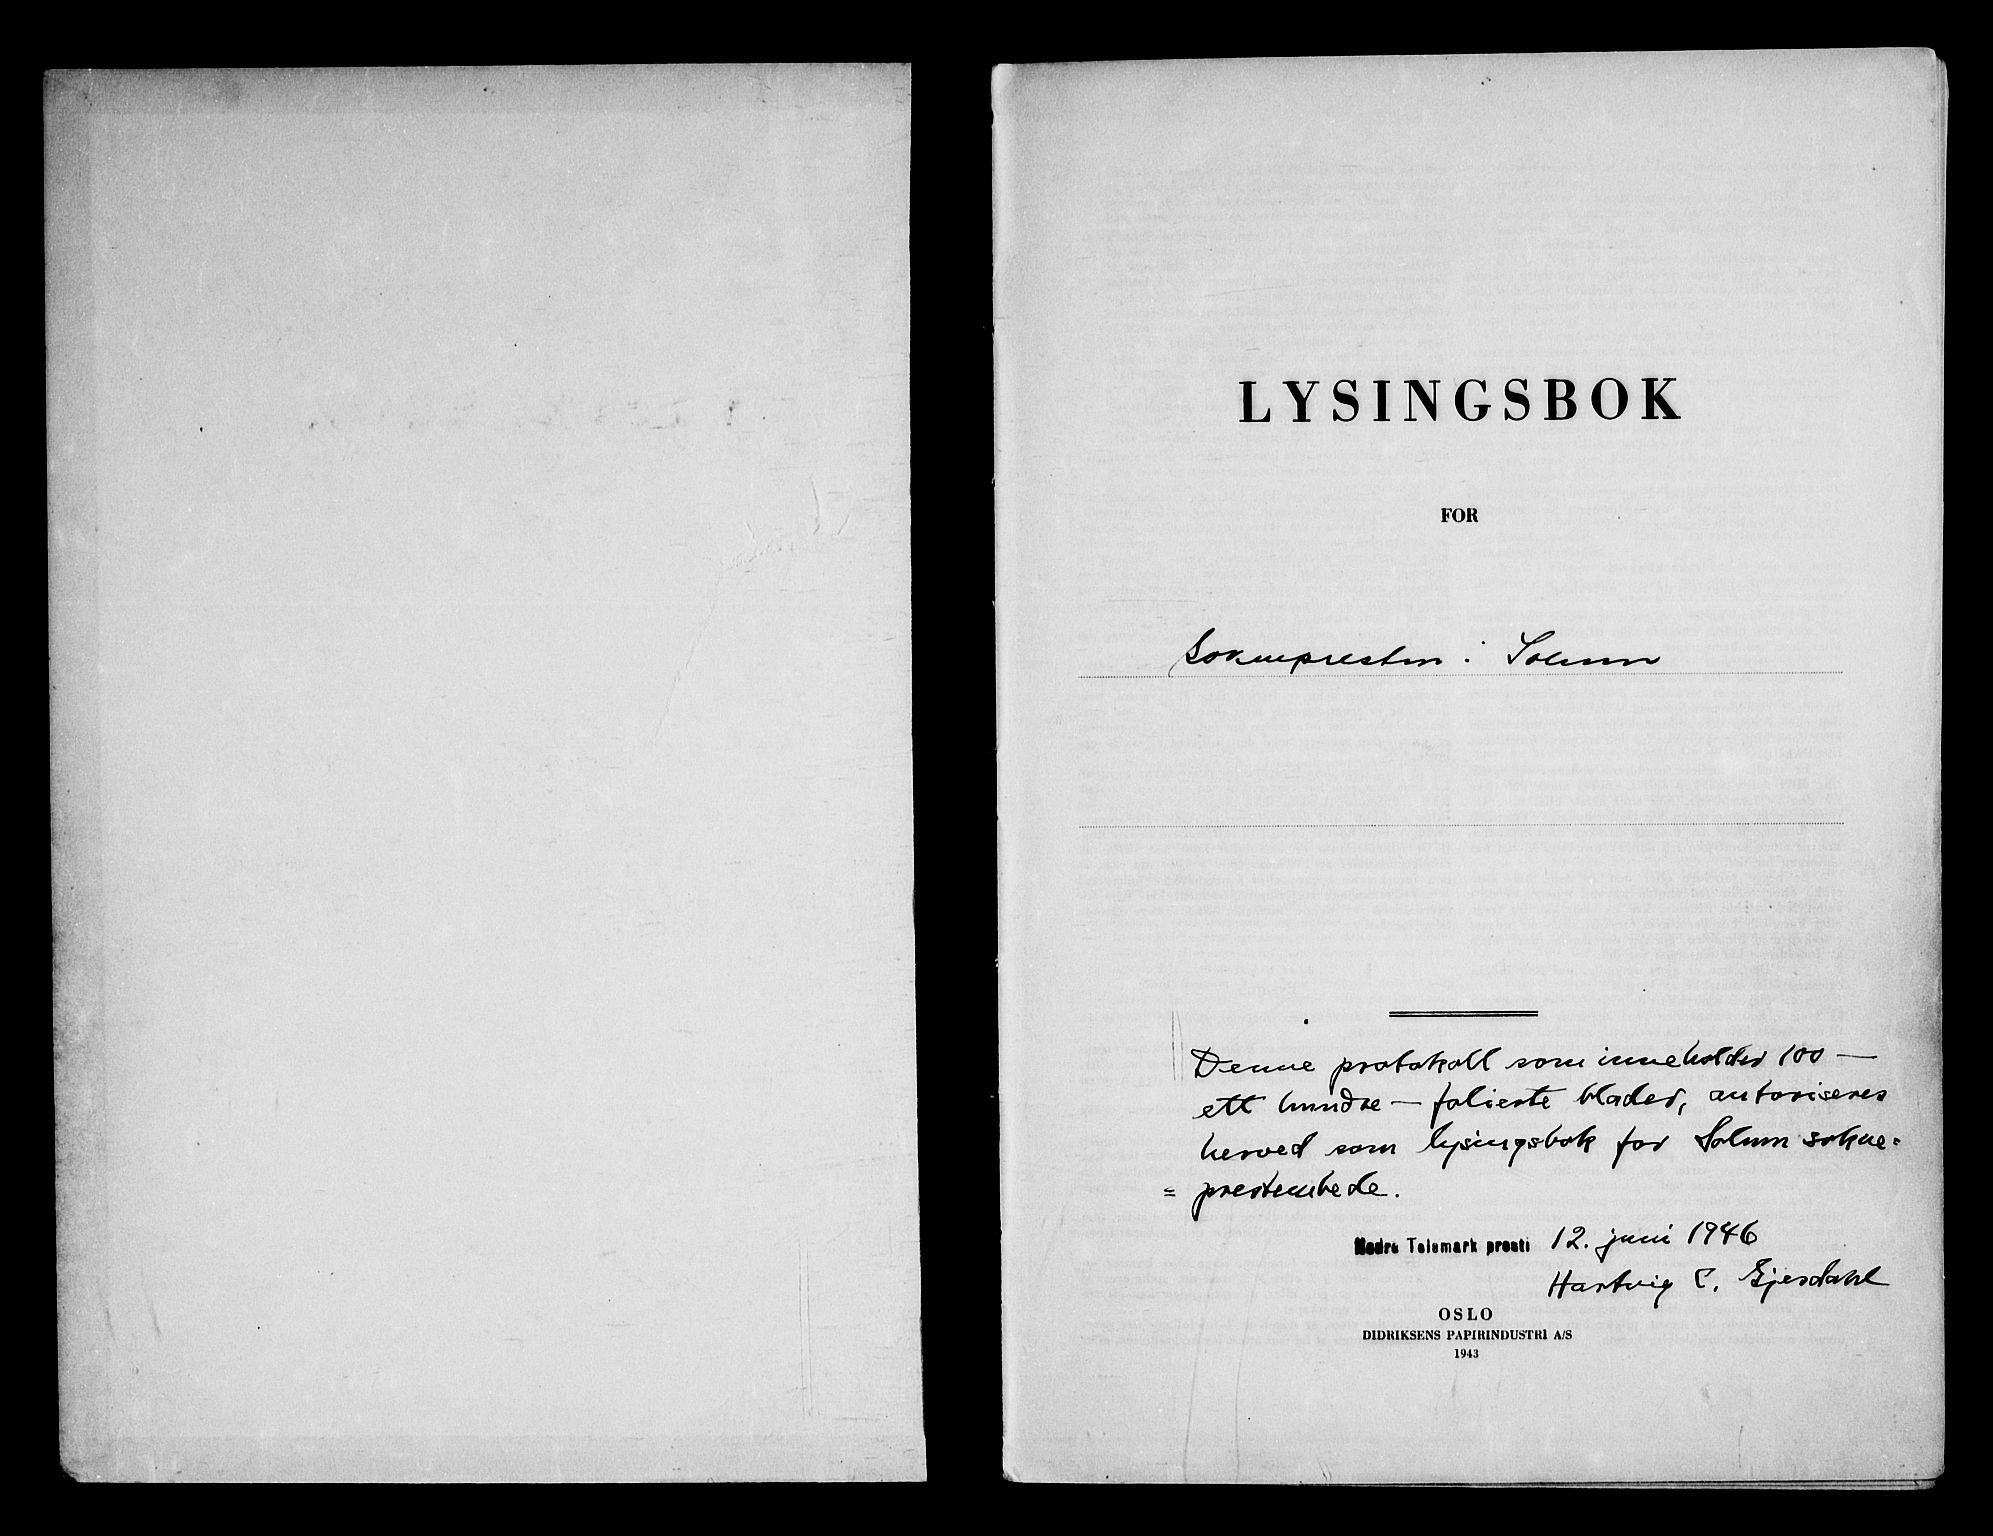 LYSINGSBOK
FOR
Soknepresten i Solum
Denne protokoll som inneholder 100 —
ett hundre — folierte blader, autoriseres
herved som lysingsbok for Solum sokne=
= prestembede.
Nedre Telemark prosti 12. juni 1946
Hartvig C. Gjesdahl
OSLO
DIDRIKSENS PAPIRINDUSTRI A/S
1943